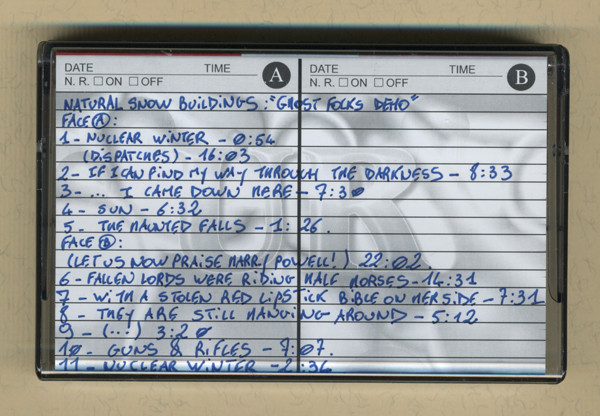 DATE TIME A
N. R. ☐ ON ☐ OFF
DATE TIME B
N. R. ☐ ON ☐ OFF
NATURAL SNOW BUILDINGS : "GHOST FOLKS DEMO"
FACE A :
1 - NUCLEAR WINTER - 0:54
(DISPATCHES) - 16:03
2 - IF I CAN FIND MY WAY THROUGH THE DARKNESS - 8:33
3 - ... I CAME DOWN HERE - 7:30
4 - SUN - 6:32
5 - THE HAUNTED FALLS - 1:26.
FACE B :
(LET US NOW PRAISE HARRY POWELL!) 22:02.
6 - FALLEN LORDS WERE RIDING MALE HORSES - 14:31
7 - WITH A STOLEN RED LIPSTICK BIBLE ON HER SIDE - 7:31
8 - THEY ARE STILL HANGING AROUND - 5:12
9 - (...!) 3:20
10 - GUNS & RIFLES - 7:07.
11 - NUCLEAR WINTER - 2:36